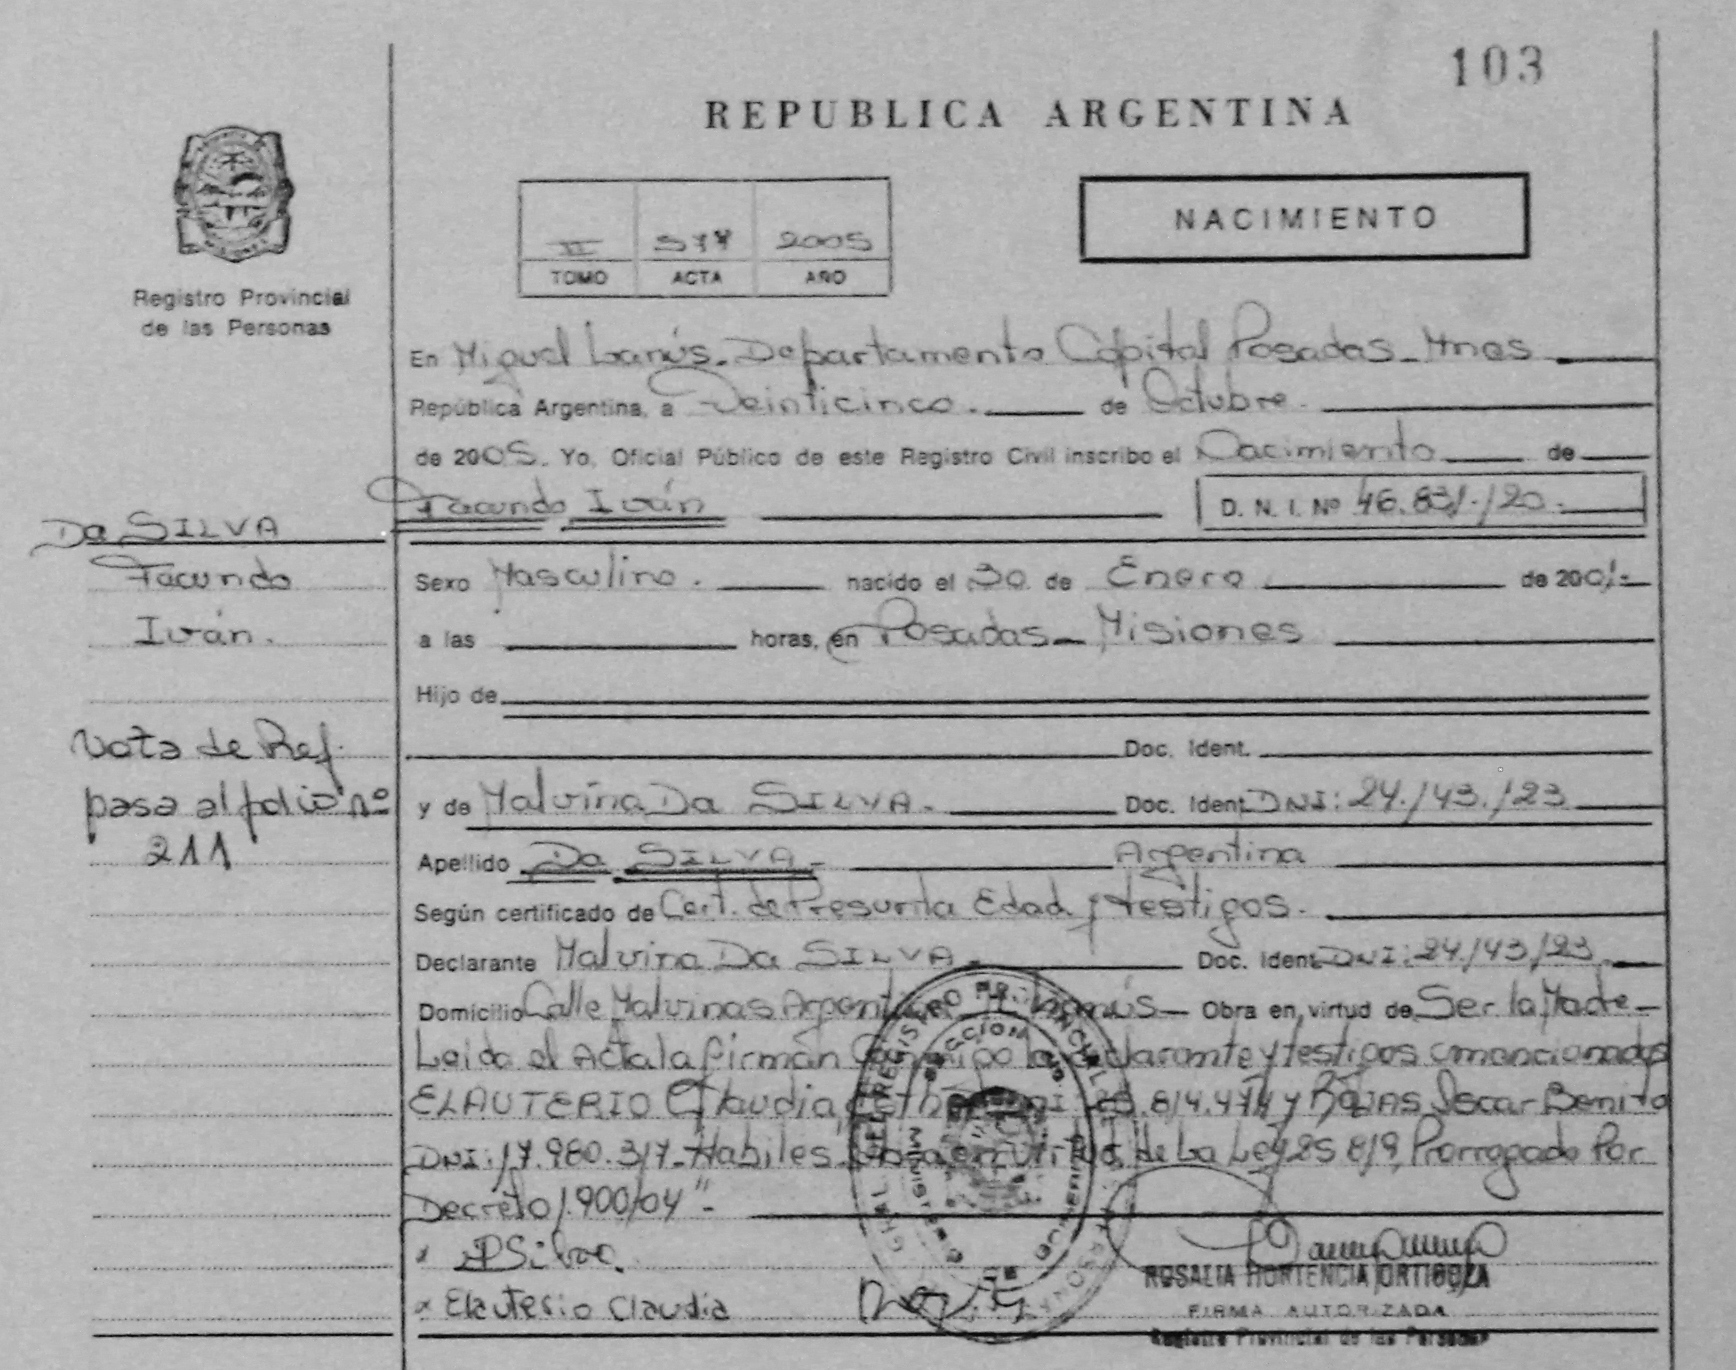 103
REPUBLICA ARGENTINA
NACIMIENTO
II 2005
TOMO ACTA AÑO
Registro Provincial
de las Personas
En Miguel Lanús - Departamento Capital Posadas - Mnes
República Argentina, a Veinticinco. de Octubre.
de 2005. Yo, Oficial Público de este Registro Civil inscribo el Nacimiento de
Facundo Iván D. N. I. Nº 46.831.120.
Da SILVA
Facundo
Iván.
Sexo Masculino. nacido el 30 de Enero de 2001.-
a las horas, en Posadas - Misiones
Hijo de
Doc. Ident.
Nota de Ref.
pasa al folio nº
211
y de Malvina Da SILVA. Doc. Ident. DNI: 24.143.123
Apellido Da SILVA - Argentina
Según certificado de Cert. de Presunta Edad y testigos.
Declarante Malvina Da SILVA - Doc. Ident. DNI: 24.143.123
Domicilio Calle Malvinas Argentinas M. Lanús - Obra en virtud de Ser la Madre -
Leida el Acta la firman Conmigo la declarante y testigos
ELAUTERIO Claudia Esther DNI: 25.814.474 y ROJAS Oscar Benito
DNI: 17.980.317 - Habiles en virtud de La Ley 25 819, Prorrogado Por
Decreto 1.900/04" -
x Elauterio Claudia
ROSALIA HORTENCIA ORTIGOZA
FIRMA AUTORIZADA
Registro Provincial de las Personas